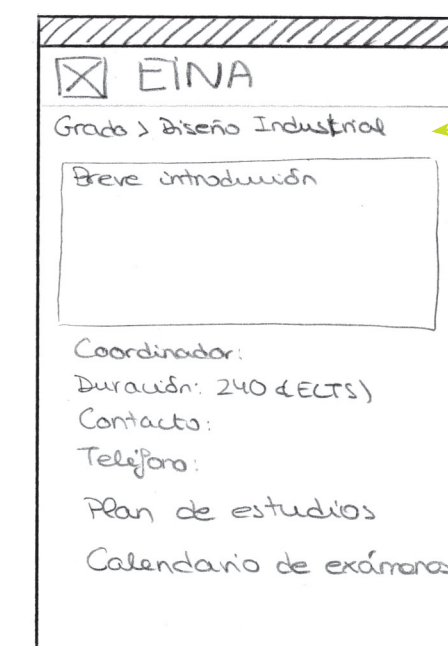 EINA
Grado > Diseño Industrial
Breve introducción
Coordinador:
Duración: 240 (ECTS)
Contacto:
Teléfono:
Plan de estudios
Calendario de exámenes